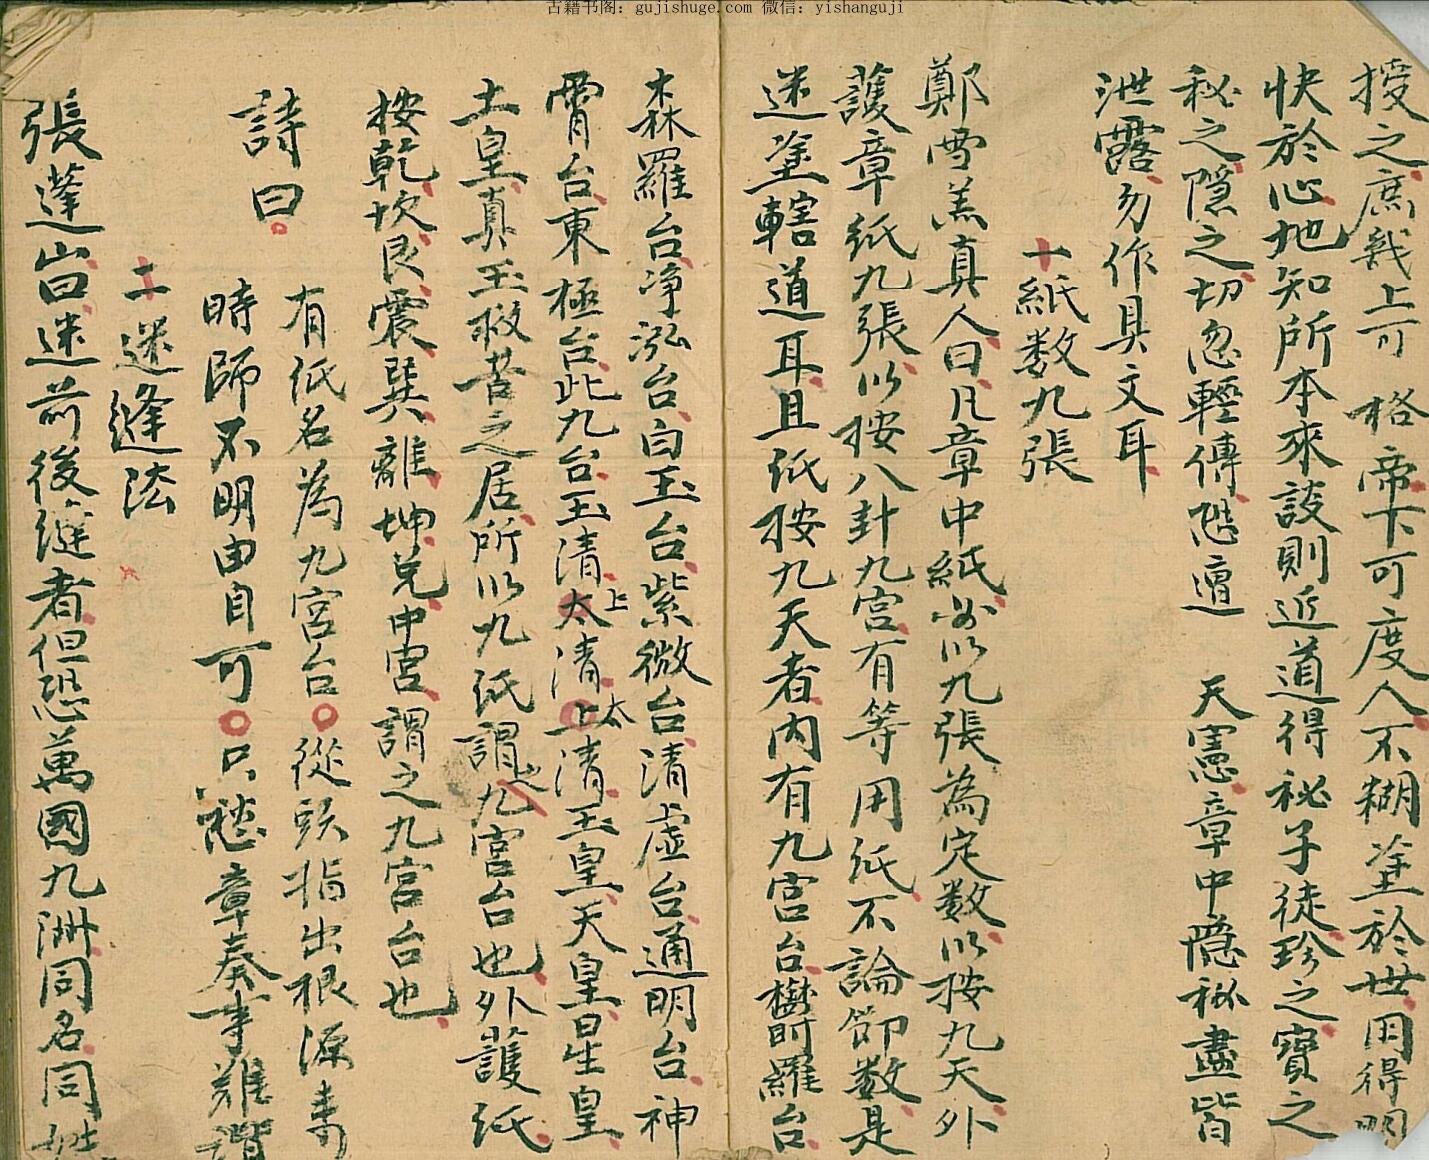 古籍书阁：gujishuge.com 微信：yishanguji
授之庶幾上可格帝下可度人不糊塗於世因得明
快於心地知所本來設則近道得秘子徒珍之寶之
秘之隱之切忽輕傳愆過天憲章中隱秘盡皆
泄露勿作具文耳
十紙数九張
鄭雪羔真人曰凡章中紙必以九張為定数以按九天外
護章紙九張以按八卦九宫有等用纸不論節数是
迷塗轄道耳且纸按九天者内有九宫台欝羅台
森羅台净泓台白玉台紫微台清虚台通明台神
霄台東極台此九台玉清上太清太上清玉皇天皇星皇
土皇真王救苦之居所以九纸謂之九宫台也外護纸
按乾坎艮震巽離坤兑中宫謂之九宫台也
詩曰
有纸名為九宫台從頭指出根源来
時師不明由自可只愁章奏事難諧
二迷縫法
張蓬山曰迷前後縫者但恐萬國九洲同名同姓